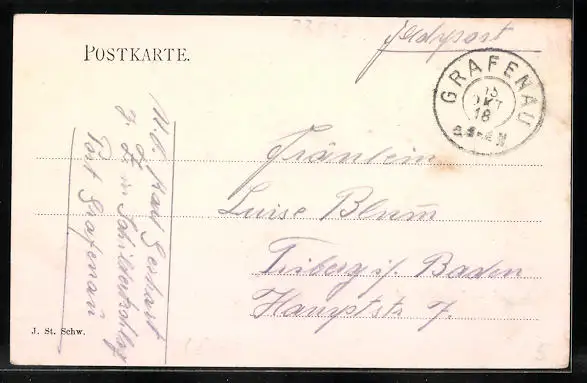 Feldpost
POSTKARTE.
GRAFENAU
15
OKT
18
N
Fräulein
Luise Blum
Triberg i/ Baden
Hauptstr 7.
Karl Gerhart
z. Zt. in Schildertschlag
Post Grafenau
J. St. Schw.